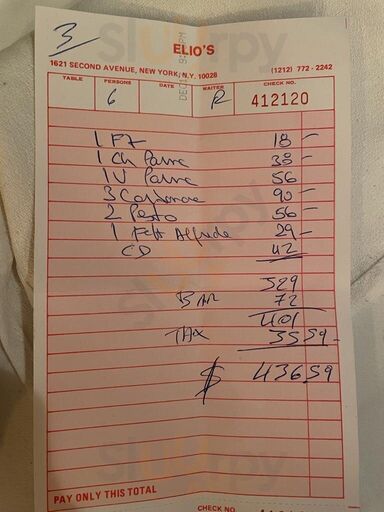 3
ELIO'S
1621 SECOND AVENUE, NEW YORK, N.Y. 10028 (1212) 772 - 2242
TABLE PERSONS DATE WAITER CHECK NO.
6 R 412120
1 FZ 18 —
1 Ch Parme 38 —
1 V Parme 56
3 90 —
2 Pesto 56 —
1 Fett Alfredo 29 —
CD 42
329
BAR 72
401
TAX 35 59 —
$ 436 59
PAY ONLY THIS TOTAL
CHECK NO.